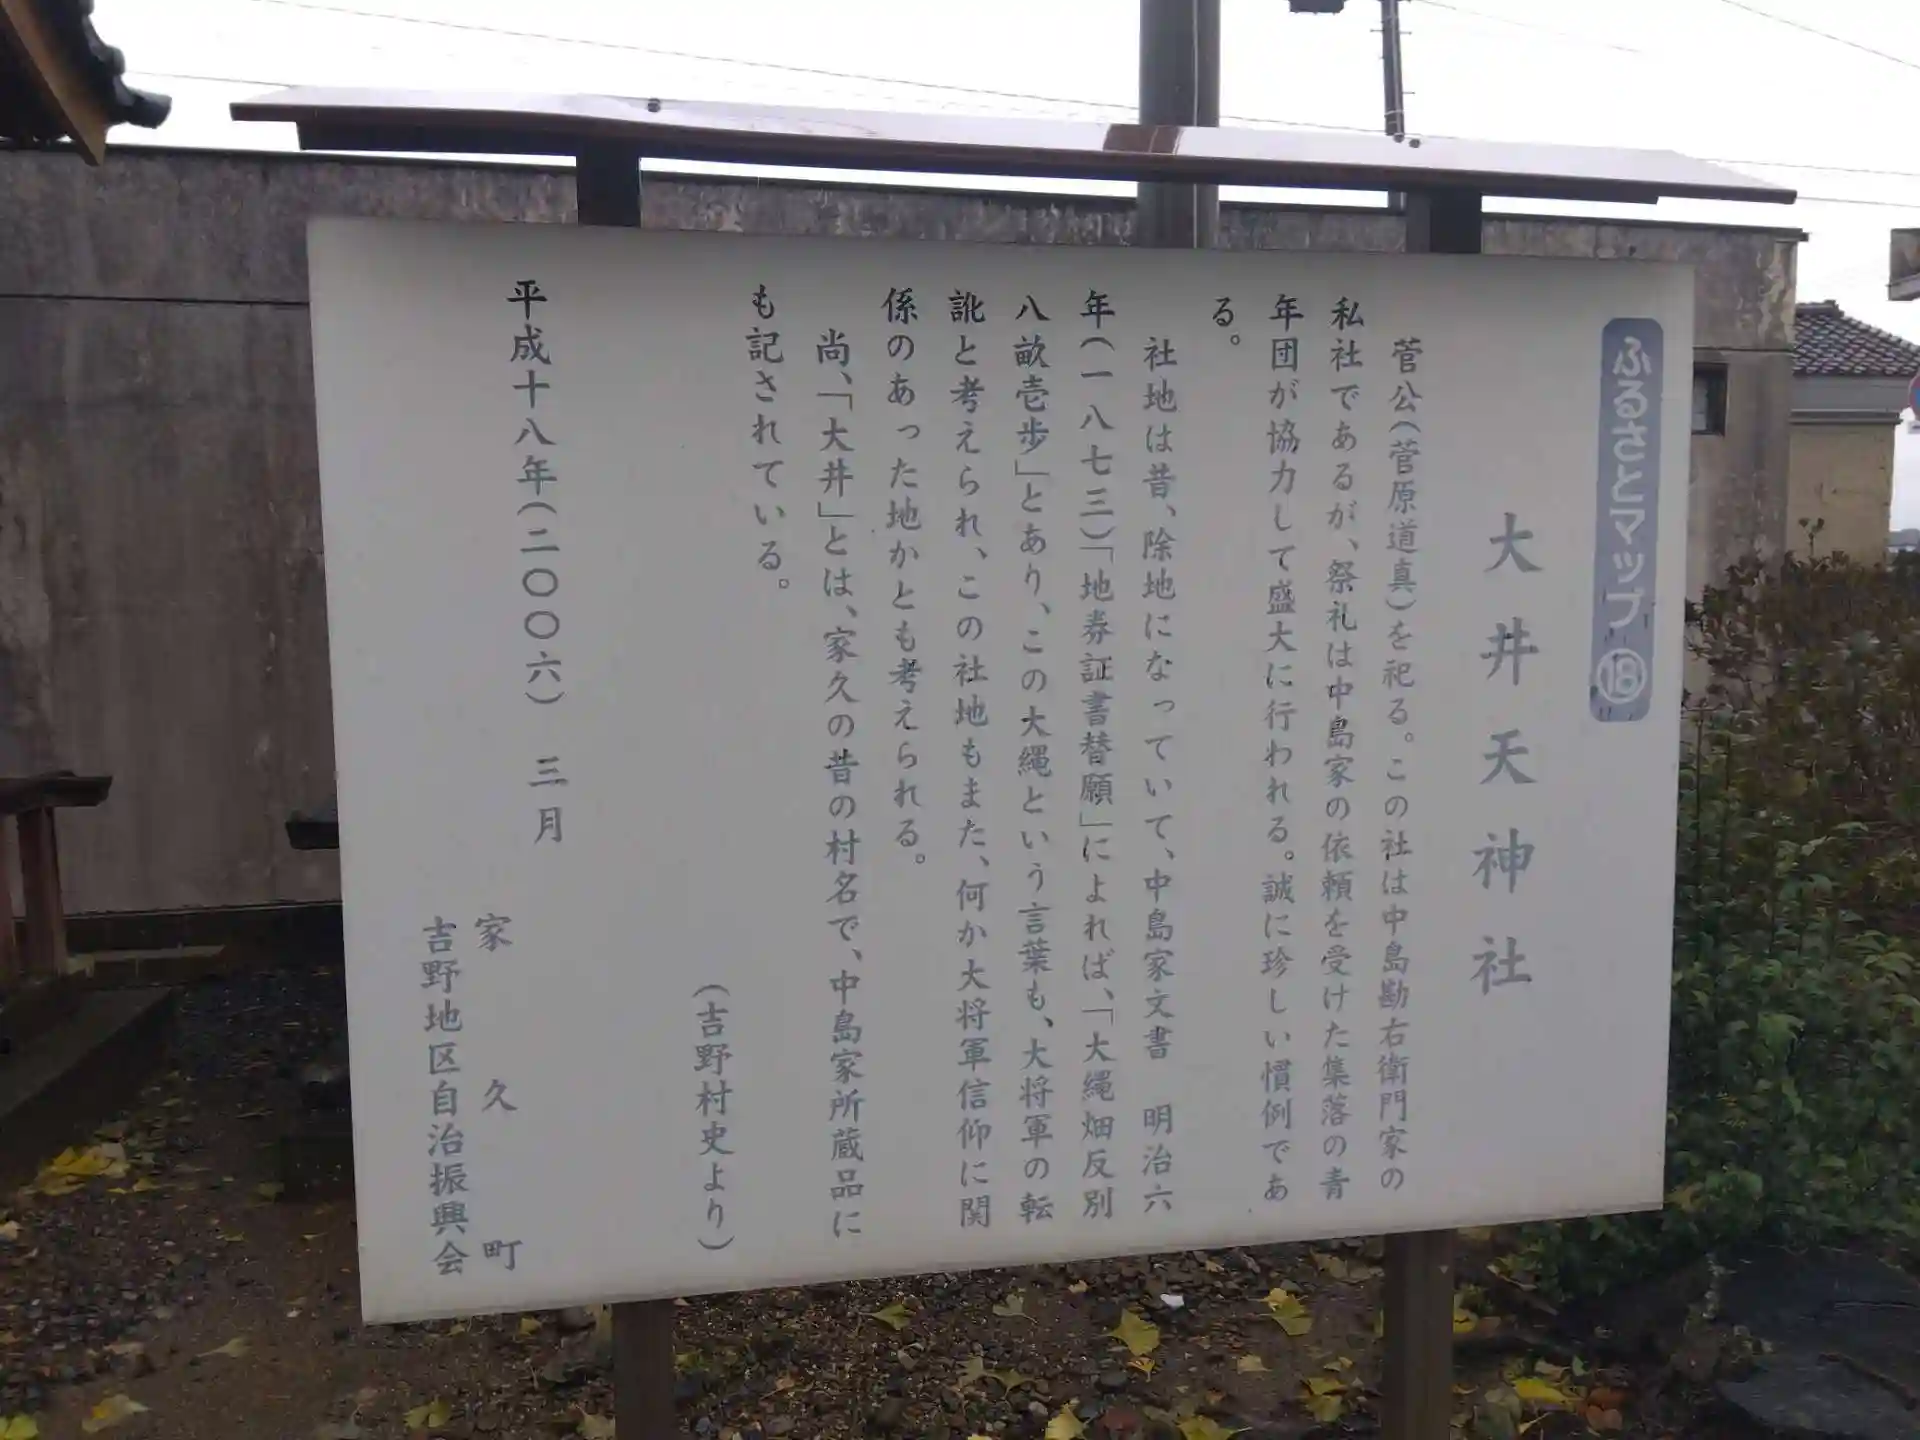 ふるさとマップ⑱
大井天神社
菅公(菅原道真)を祀る。この社は中島勘右衛門家の
私社であるが、祭礼は中島家の依頼を受けた集落の青
年団が協力して盛大に行われる。誠に珍しい慣例であ
る。
社地は昔、除地になっていて、中島家文書　明治六
年(一八七三)「地券証書替願」によれば、「大縄畑反別
八畝壱歩」とあり、この大縄という言葉も、大将軍の転
訛と考えられ、この社地もまた、何か大将軍信仰に関
係のあった地かとも考えられる。
尚、「大井」とは、家久の昔の村名で、中島家所蔵品に
も記されている。
(吉野村史より)
平成十八年(二〇〇六)　三月
家久町
吉野地区自治振興会